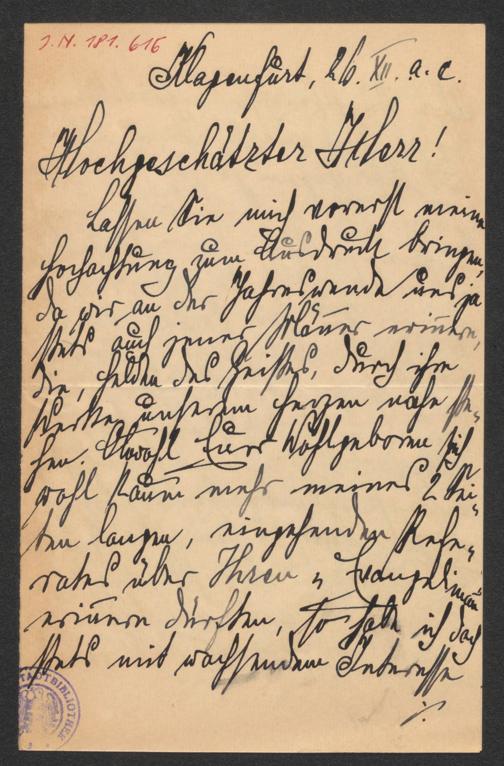 J.N. 181.616
Klagenfurt, 26. XII. a. c.
Hochgeschätzter Herr!
Lassen Sie mich vorerst meine
Hochachtung zum Ausdruck bringen,
da wir an der Jahreswende uns ja
stets auch jener Männer erinnern,
die, Helden des Geistes, durch ihre
Werke unserem Herzen nahe ste-
hen. Obwohl Euer Wohlgeboren sich
wohl kaum mehr meines 2 Sei-
ten langen, eingehenden Refe-
rates über Ihren „Evangelimann
erinnern dürften, so habe ich doch
stets mit wachsendem Interesse
./.
STADTBIBLIOTHEK